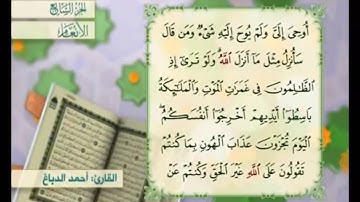 الجزء السابع
الأنعام
أُوحِيَ إِلَيَّ وَلَمْ يُوحَ إِلَيْهِ شَيْءٌ وَمَن قَالَ
سَأُنزِلُ مِثْلَ مَا أَنزَلَ اللَّهُ وَلَوْ تَرَىٰ إِذِ
الظَّالِمُونَ فِي غَمَرَاتِ الْمَوْتِ وَالْمَلَائِكَةُ
بَاسِطُوا أَيْدِيهِمْ أَخْرِجُوا أَنفُسَكُمُ
الْيَوْمَ تُجْزَوْنَ عَذَابَ الْهُونِ بِمَا كُنتُمْ
تَقُولُونَ عَلَى اللَّهِ غَيْرَ الْحَقِّ وَكُنتُمْ عَنْ
القارئ: أحمد الدباغ